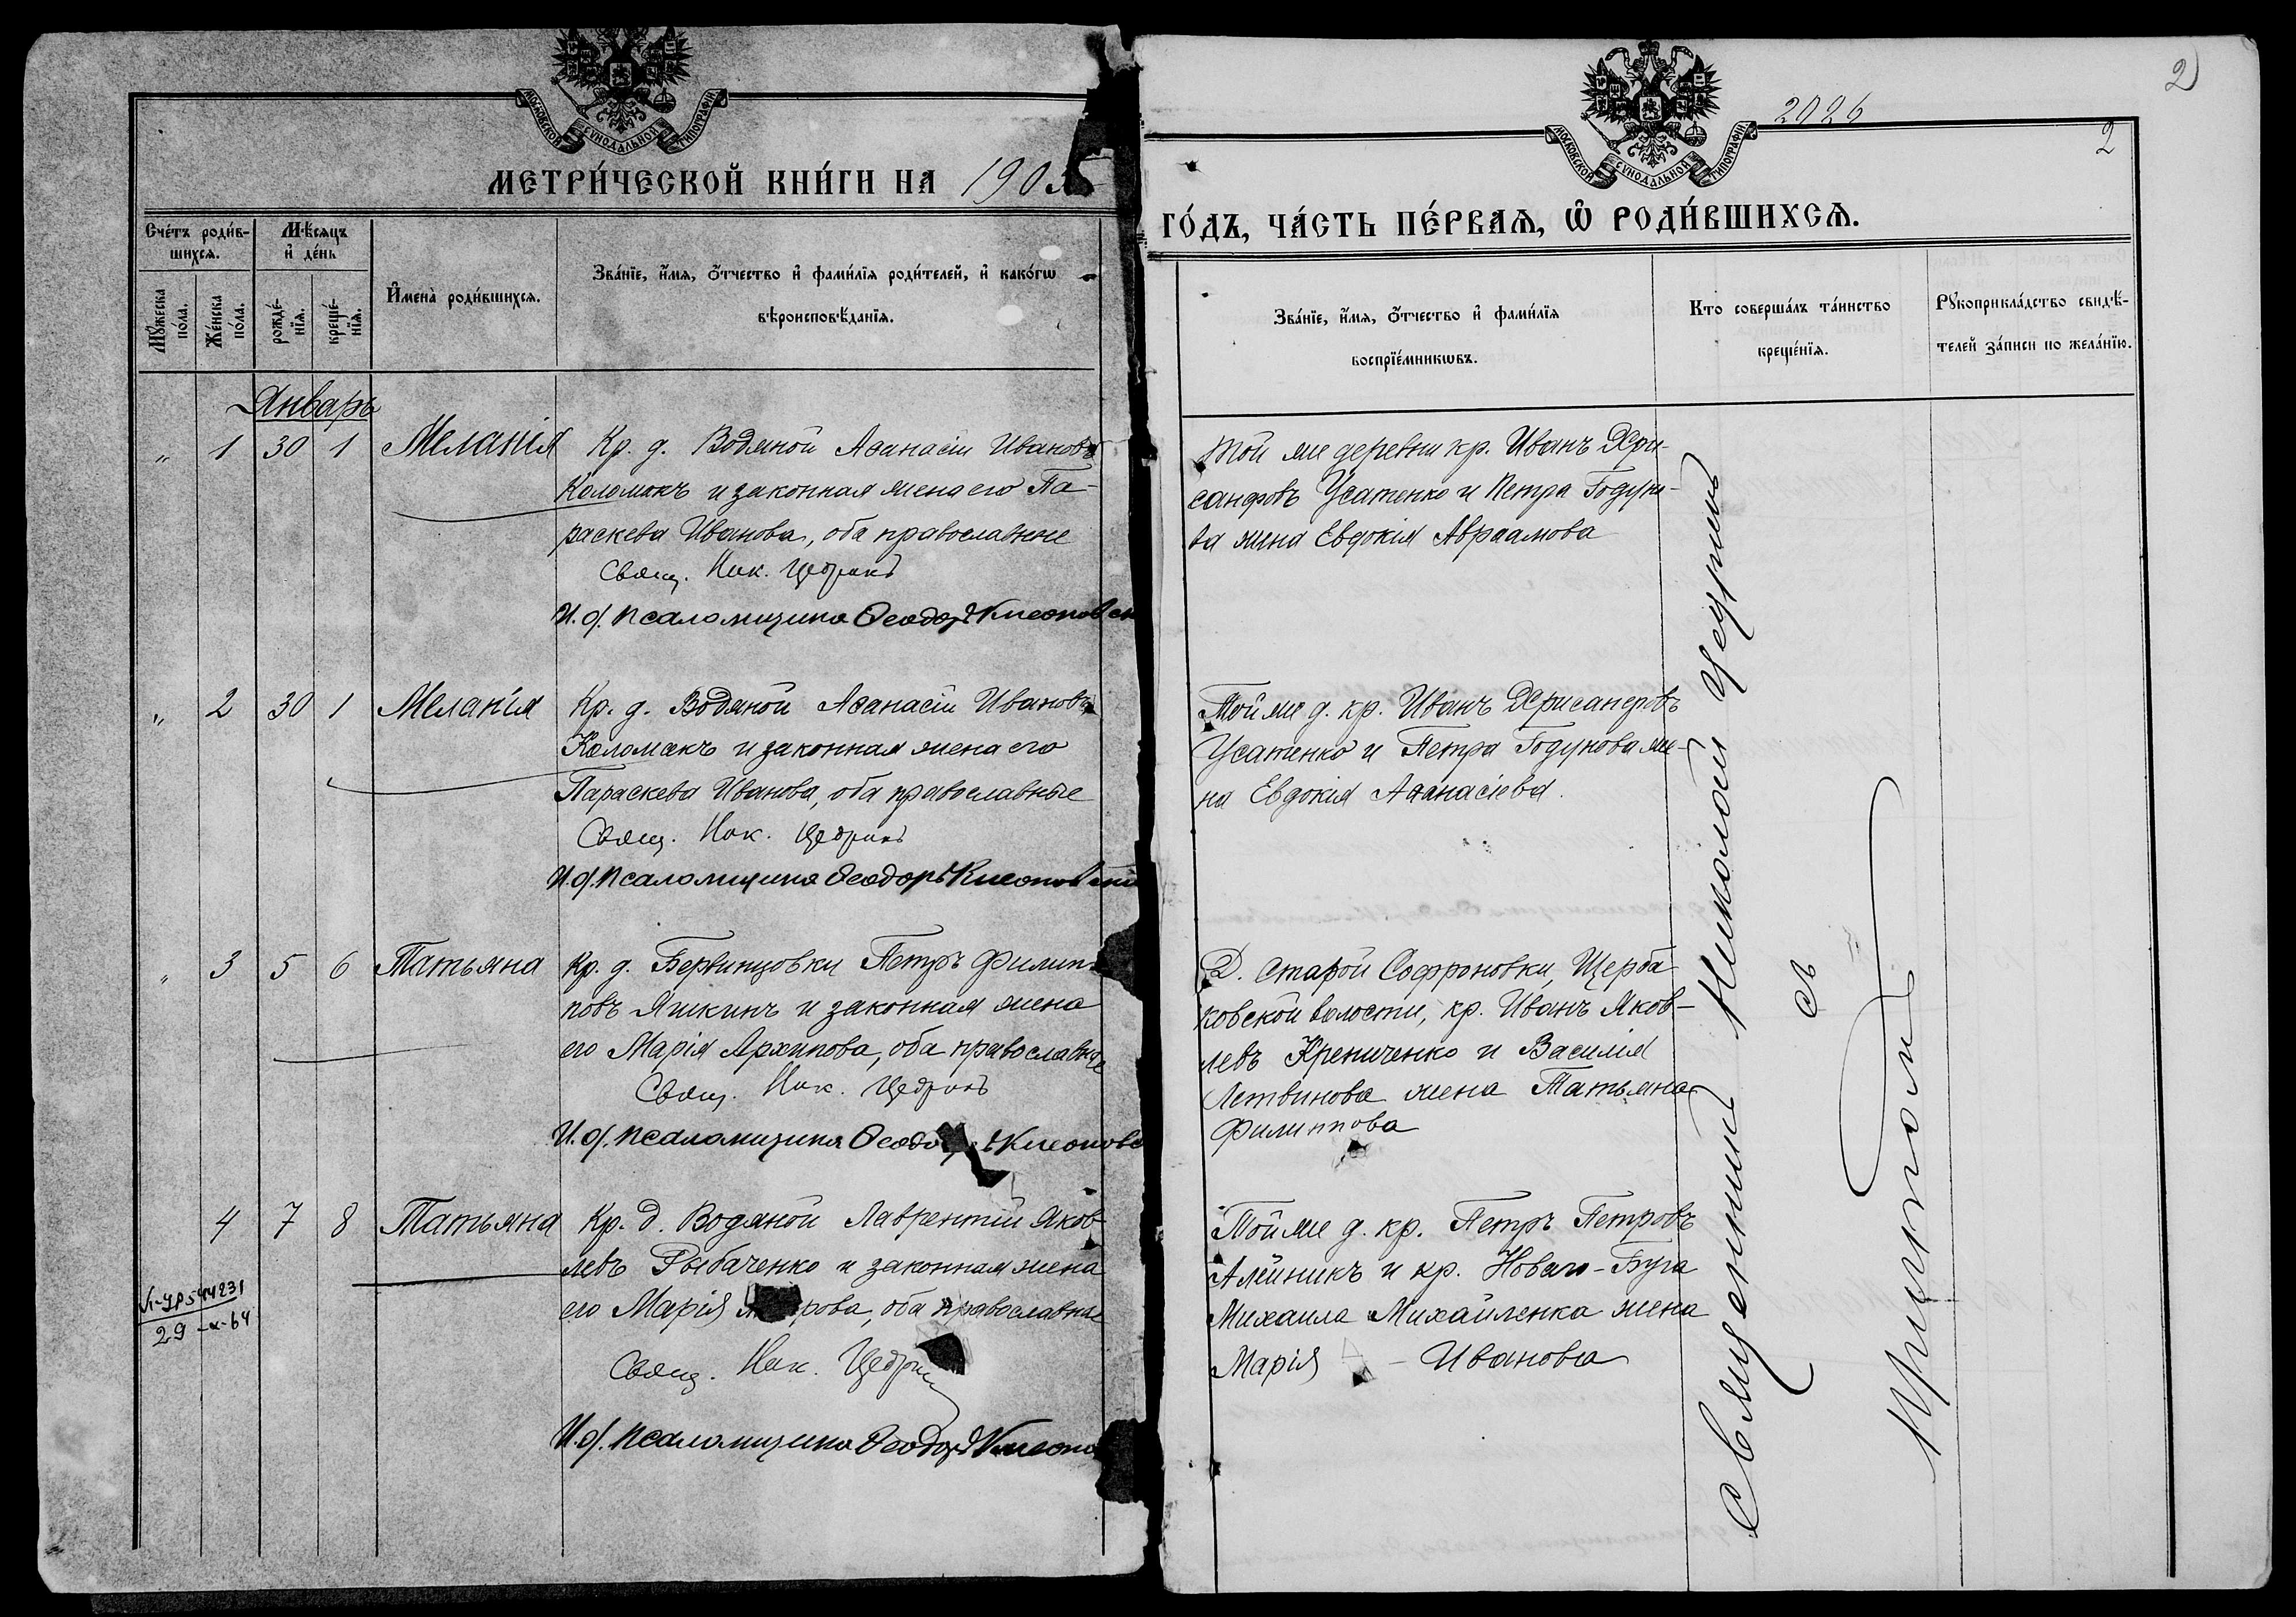 МОСКОВСКОЙ СѴНОДАЛЬНОЙ ТИПОГРАФІИ
МЕТРИ́ЧЕСКОЙ КНИ́ГИ НА 1905
Сче́тъ роди́в-
шихсѧ.
Мѣ́сѧцъ
и҆ де́нь
Мꙋ́жеска
по́ла.
Же́нска
по́ла.
рожде́-
нїѧ.
креще́-
нїѧ.
И҆мена̀ роди́вшихсѧ.
Зва́нїе, и҆́мѧ, ѻ҆́тчество и҆ фами́лїѧ роди́телей, и҆ како́гѡ
вѣроисповѣ́данїѧ.
Январь
„ 1 30 1 Меланія Кр. д. Водяной Аѳанасій Ивановъ
Коломакъ и законная жена его Па-
раскева Иванова, оба православные
Свящ. Ник. Щедринъ
И. д. псаломщика Ѳеодоръ
„ 2 30 1 Меланія Кр. д. Водяной Аѳанасій Ивановъ
Коломакъ и законная жена его
Параскева Иванова, оба православные
Свящ. Ник. Щедринъ
И. д. псаломщика Ѳеодоръ
„ 3 5 6 Татьяна Кр. д. Филип-
повъ Яшкинъ и законная жена
его Марія Архипова, оба православные
Свящ. Ник. Щедринъ
И. д. псаломщика
4 7 8 Татьяна Кр. д. Водяной Лаврентій Яков-
левъ Рыбаченко и законная жена
его Марія оба православные
Свящ. Ник.
И. д. псаломщика Ѳеодоръ
544231
29-X-64
2026
2
2
МОСКОВСКОЙ СѴНОДАЛЬНОЙ ТИПОГРАФІИ
ГО́ДЪ, ЧА́СТЬ ПЕ́РВАѦ, Ѽ РОДИ́ВШИХСѦ.
Зва́нїе, и҆́мѧ, ѻ҆́тчество и҆ фами́лїѧ
воспрїе́мникѡвъ.
Кто соверша́лъ та́инство
креще́нїѧ.
Рꙋкоприкла́дство свидѣ́-
телей за́писи по жела́нїю.
Той же деревни кр. Иванъ Хри-
санфовъ Усатенко и Петра Годуно-
ва жена Евдокія Авраамова
Той же д. кр. Иванъ Хрисанфовъ
Усатенко и Петра Годунова же-
на Евдокія Аѳанасіева.
Д. Старой Софроновки, Щерба-
ковской волости, кр. Иванъ Яков-
левъ Крениченко и Василія
Летвинова жена Татьяна
Филиппова
Той же д. кр. Петръ Петровъ
Алейникъ и кр. Новаго-Буга
Михаила Михайленка жена
Марія – Иванова
Священникъ Николай Щедринъ
съ
причтомъ